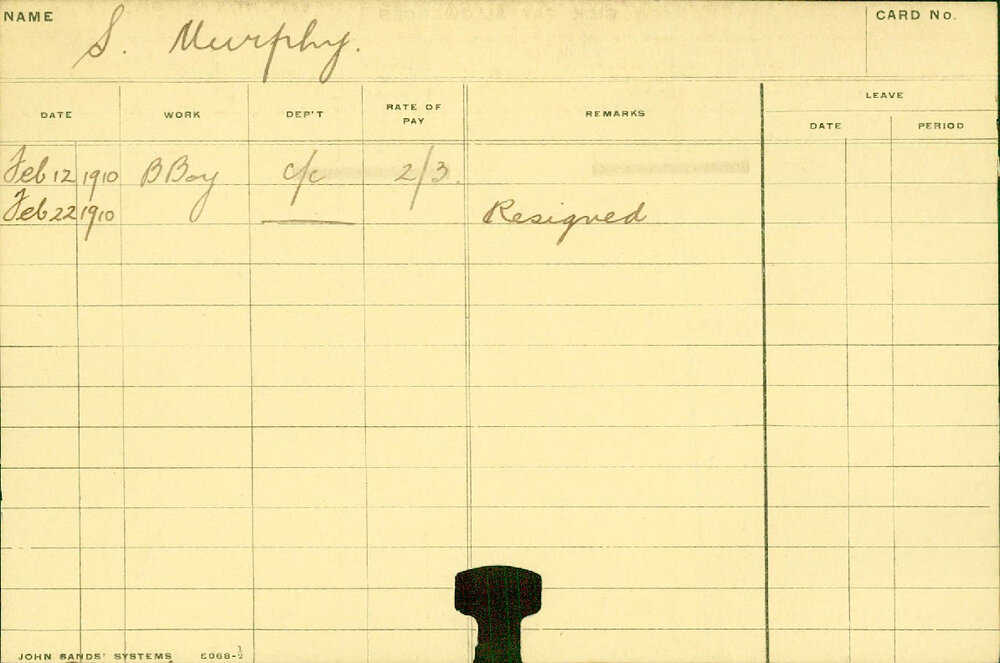 NAME S. Murphy. CARD No.
DATE WORK DEP'T RATE OF PAY REMARKS LEAVE
DATE PERIOD
Feb 12 1910 B Boy c/c 2/3.
Feb 22 1910 Resigned
JOHN SANDS' SYSTEMS